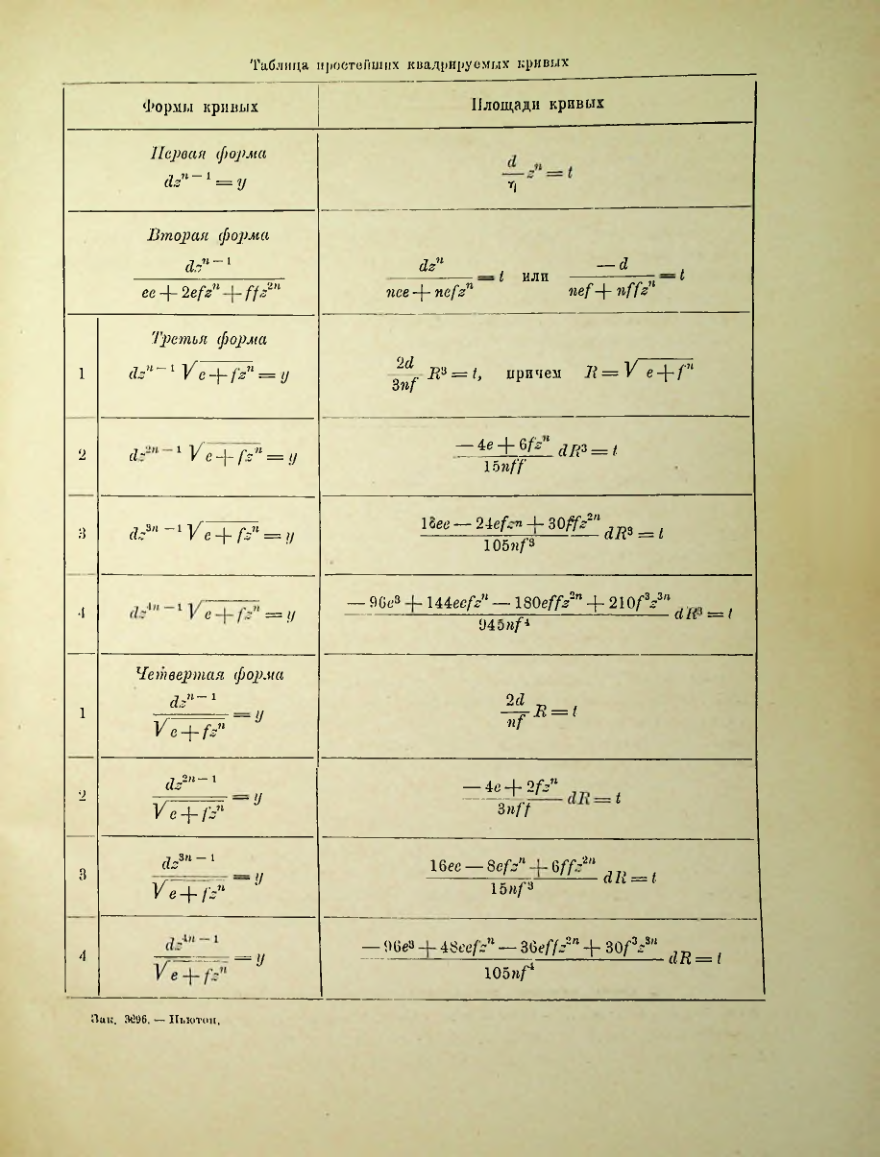 Таблица простейших квадрируемых кривых
Формы кривых | Площади кривых
Первая форма
dz^{n-1} = y | \frac{d}{η} z^n = t
Вторая форма
\frac{dz^{n-1}}{ee + 2efz^n + ffz^{2n}} | \frac{dz^n}{nee + nefz^n} = t или \frac{-d}{nef + nffz^n} = t
Третья форма
1 | dz^{n-1} \sqrt{e + fz^n} = y | \frac{2d}{3nf} R^3 = t, причем R = \sqrt{e + f^n}
2 | dz^{2n-1} \sqrt{e + fz^n} = y | \frac{-4e + 6fz^n}{15nff} dR^3 = t
3 | dz^{3n-1} \sqrt{e + fz^n} = y | \frac{16ee - 24efz^n + 30ffz^{2n}}{105nf^3} dR^3 = t
4 | dz^{4n-1} \sqrt{e + fz^n} = y | \frac{-96e^3 + 144eefz^n - 180effz^{2n} + 210f^3z^{3n}}{945nf^4} dR^3 = t
Четвертая форма
1 | \frac{dz^{n-1}}{\sqrt{e + fz^n}} = y | \frac{2d}{nf} R = t
2 | \frac{dz^{2n-1}}{\sqrt{e + fz^n}} = y | \frac{-4e + 2fz^n}{3nff} dR = t
3 | \frac{dz^{3n-1}}{\sqrt{e + fz^n}} = y | \frac{16ee - 8efz^n + 6ffz^{2n}}{15nf^3} dR = t
4 | \frac{dz^{4n-1}}{\sqrt{e + fz^n}} = y | \frac{-96e^3 + 48eefz^n - 36effz^{2n} + 30f^3z^{3n}}{105nf^4} dR = t
Зак. 3696. — Ньютон.